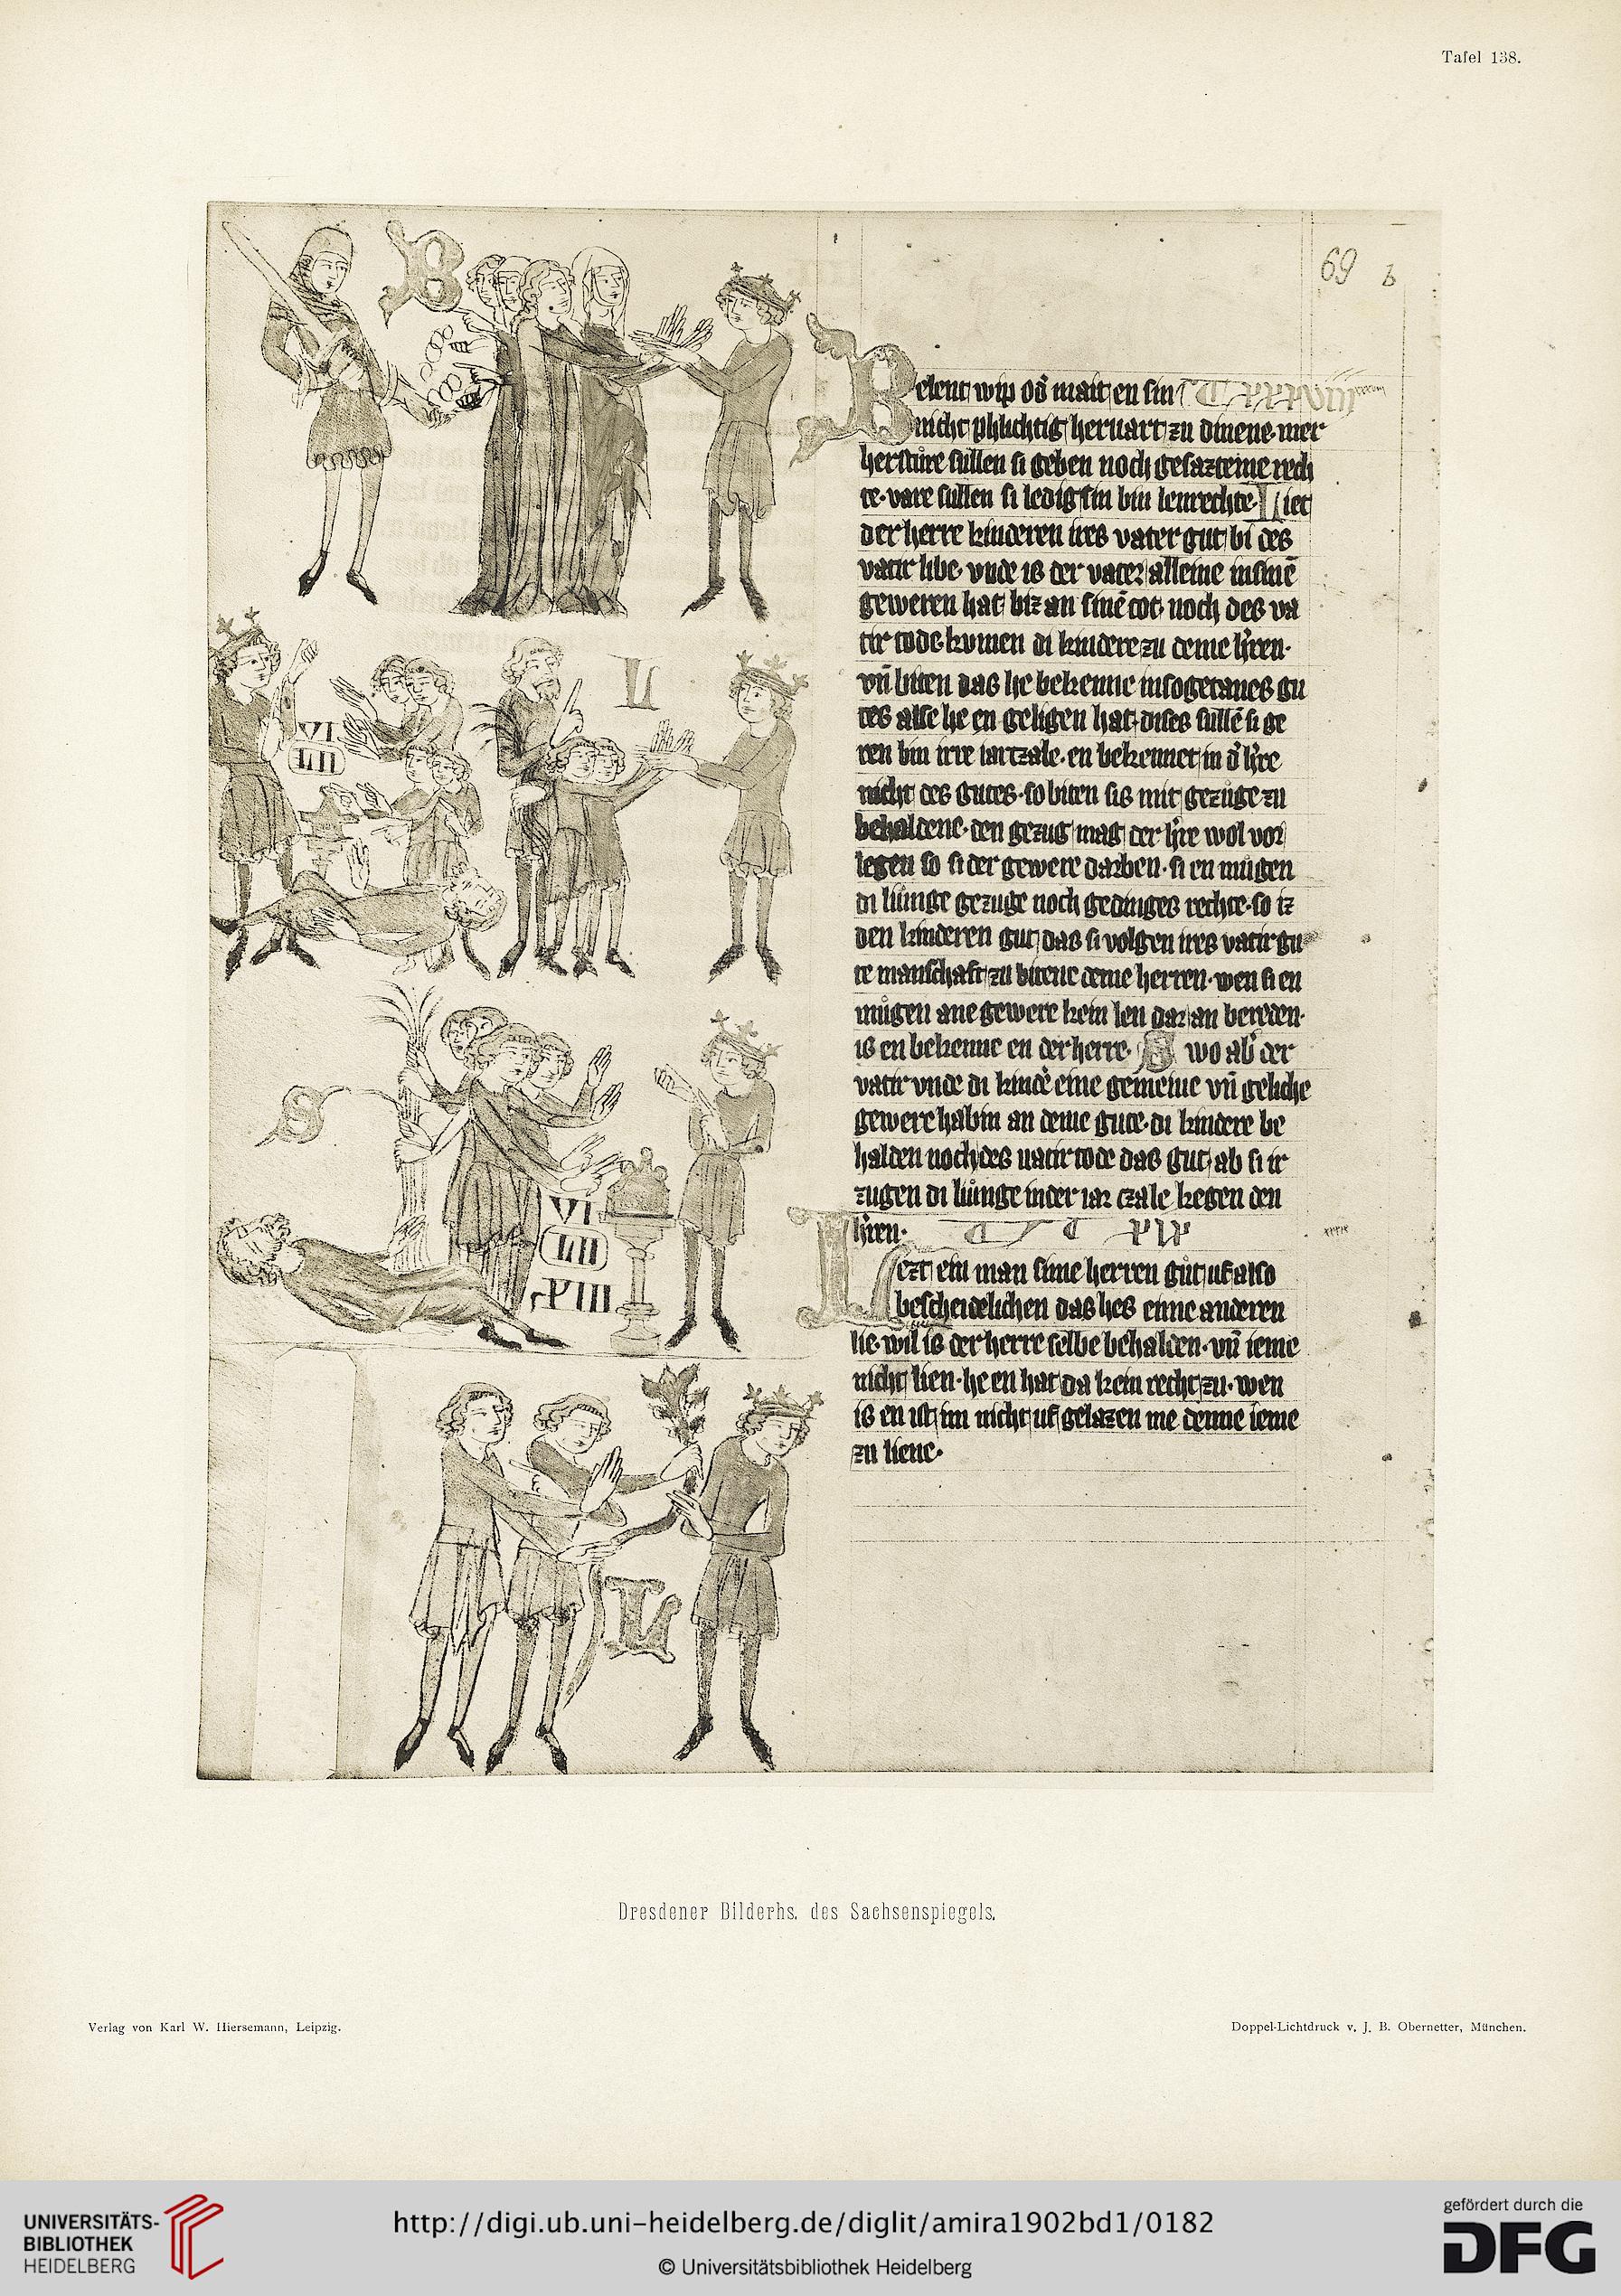 Tafel 138.
69 b
B
Belent wip od᷒ mait en sin
nicht phlichtig heruart zu dinene. mer
herstůre sullen si geben noch gesazteme rech
te. vare sullen si ledig sin bin lenrechte. Liet
der herre kinderen ires vater gut bi des
vatir libe. vnde is der vater alleine in sinē
geweren hat biz an sinē tot. noch des va
tir tode kumen di kindere zu deme h̓ren.
vn̄ biten das he bekenne in sogetanes gu
tes alse he en geligen hat. dises sullē si ge
ren bin irre iartzale. en bekennet in d᷒ h̓re
nicht des gutes. so biten sis mit gezůge zu
behaldene. den gezug mag der h̓re wol vor
legen so si der gewere darben. si en můgen
di lůnge gezuge noch gedinges rechte. so iz
den kinderen gut das si volgen ires vatir gu
te manschaft zu bitene deme herren. wen si en
můgen ane gewere kein len dar an bereden.
is en bekenne en der herre. S wo ab᷒ der
vatir vnde di kind᷒e eine gemeine vn̄ geliche
gewere habin an deme gute. di kindere be
halden noch des vatir tode das gut. ab si ir
zugen di lůnge in der iar czale kegen den
h̓ren.
Lezt ein man sime herren gůt uf also
bescheidelichen das hes enne anderen
lie. wil is der herre selbe behalden. vn̄ ieme
nicht lien. he en hat da kein recht zu. wen
is en ist im nicht uf gelazen me denne ieme
zu liene.
L
VI
LII
S
VI
LII
XIII
L
Dresdener Bilderhs. des Sachsenspiegels.
Verlag von Karl W. Hiersemann, Leipzig.
Doppel-Lichtdruck v. J. B. Obernetter, München.
UNIVERSITÄTS-
BIBLIOTHEK
HEIDELBERG
http://digi.ub.uni-heidelberg.de/diglit/amira1902bd1/0182
© Universitätsbibliothek Heidelberg
gefördert durch die
DFG